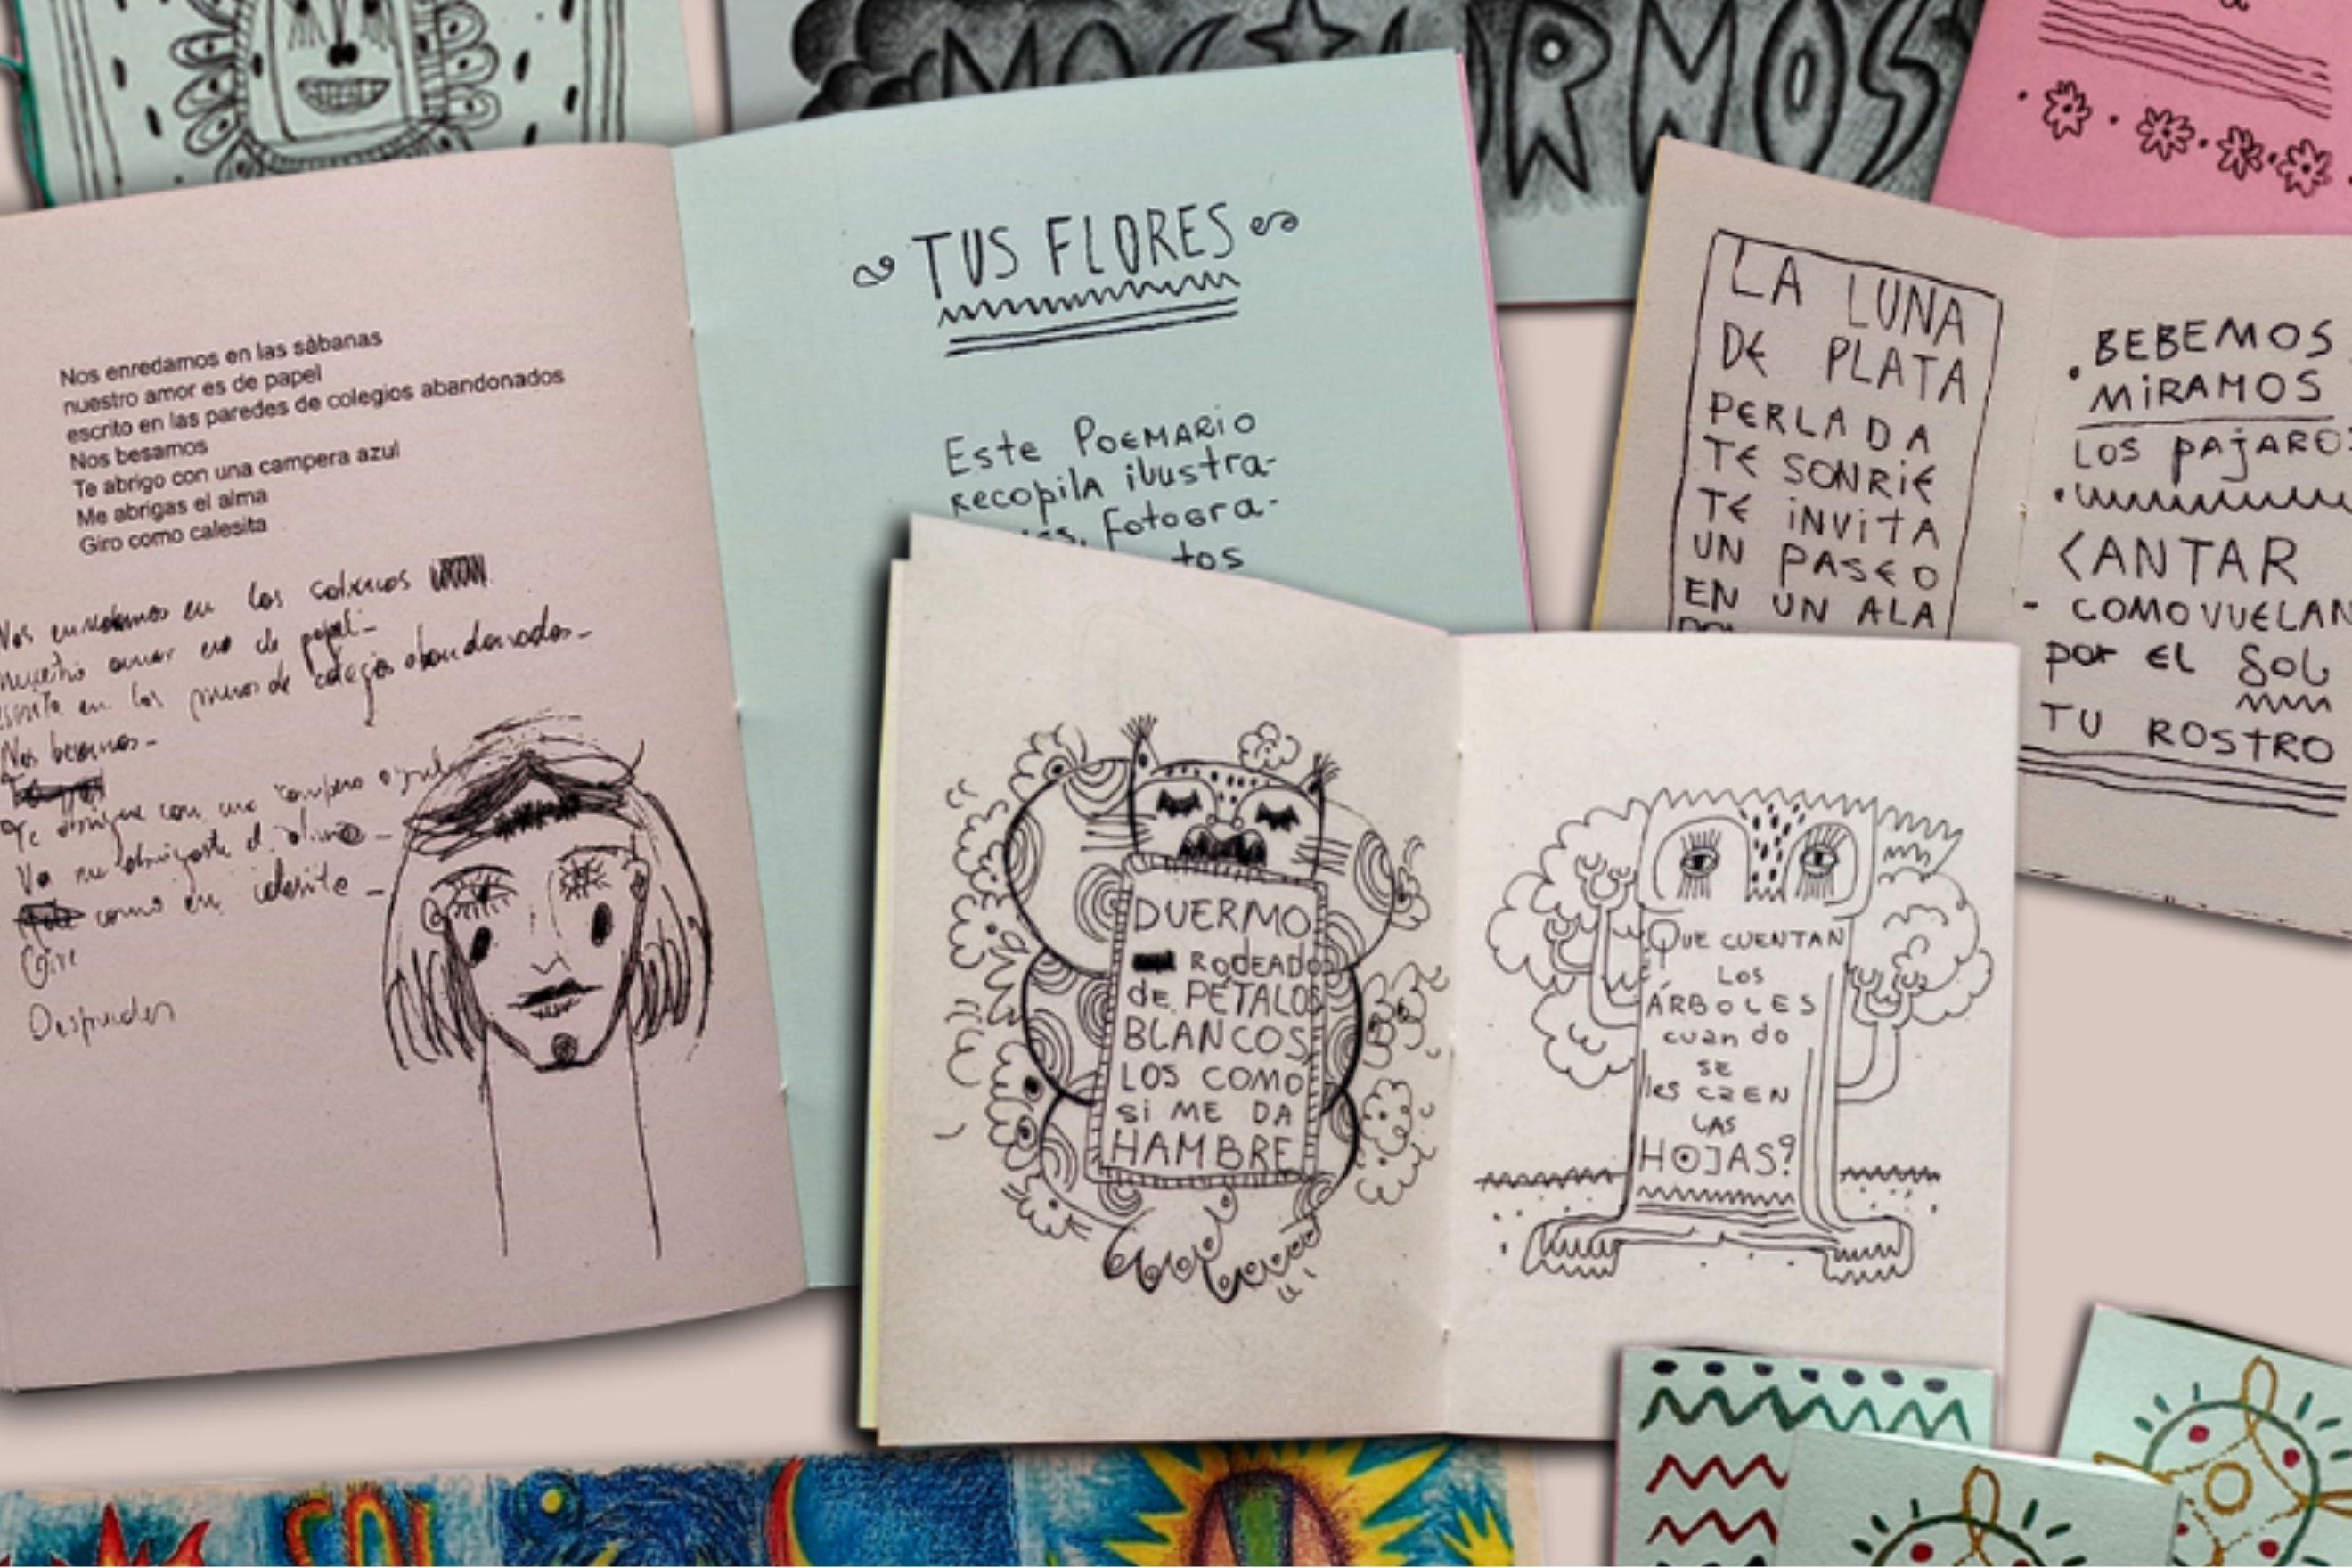 NOCTURNOS
TUS FLORES
Este POEMARIO
RECOPILA ilustra-
fotogra-
tos
Nos enredamos en las sàbanas
nuestro amor es de papel
escrito en las paredes de colegios abandonados
Nos besamos
Te abrigo con una campera azul
Me abrigas el alma
Giro como calesita
Nos enredamos en las
nuestro amor de papel-
en los muros de colegios abandonados-
Nos besamos-
Te con una campera azul
el
como en calesita-
LA LUNA
DE PLATA
PERLADA
TE SONRIE
TE iNViTA
UN PASEO
EN UN ALA
BEBEMOS
MiRAMOS
LOS pAjARO
CANTAR
- COMO VUELAN
por EL SOL
TU ROSTRO
DUERMO
RODEADO
de PÉTALOS
BLANCOS
LOS COMO
Si ME DA
HAMBRE
QUE CUENTAN
LOS
ÁRBOLES
cuando
SE
les caEN
LAS
HOJAS?
SOL